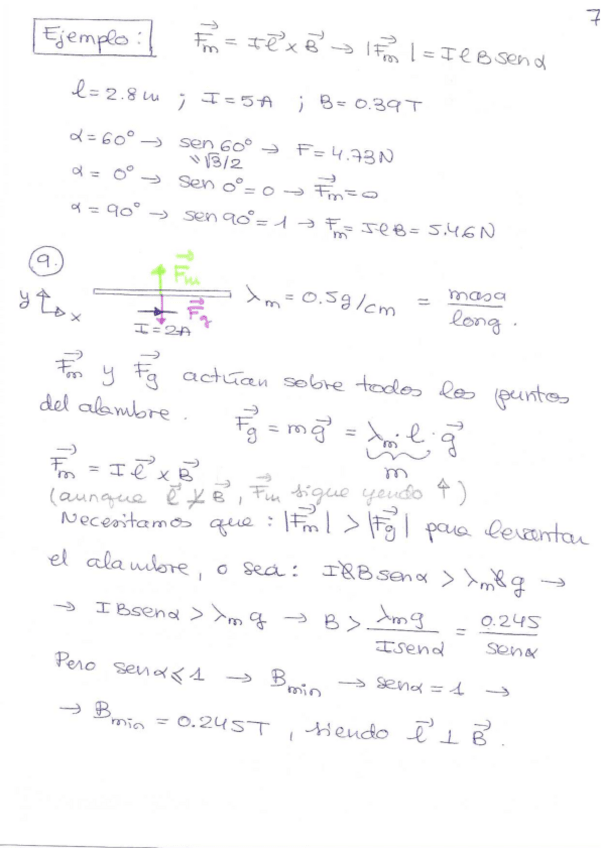 7
Ejemplo: F⃗m = I l⃗ x B⃗ → |F⃗m| = I l B sen α
l = 2.8 m ; I = 5A ; B = 0.39T
α = 60° → sen 60° → F = 4.73N
" √3/2
α = 0° → sen 0° = 0 → F⃗m = 0
α = 90° → sen 90° = 1 → Fm = I l B = 5.46 N
9.
F⃗m
y x F⃗g λm = 0.5 g/cm = masa / long.
I = 2A
F⃗m y F⃗g actúan sobre todos los puntos
del alambre. F⃗g = m g⃗ = λm · l · g⃗
m
F⃗m = I l⃗ x B⃗
(aunque l⃗ ⊥̸ B⃗, F⃗m sigue yendo ↑)
Necesitamos que : |F⃗m| > |F⃗g| para levantar
el alambre, o sea : I l B sen α > λm l g →
→ I B sen α > λm g → B > λm g / I sen α = 0.245 / sen α
Pero sen α ≤ 1 → Bmin → sen α = 1 →
→ Bmin = 0.245T , siendo l⃗ ⊥ B⃗.